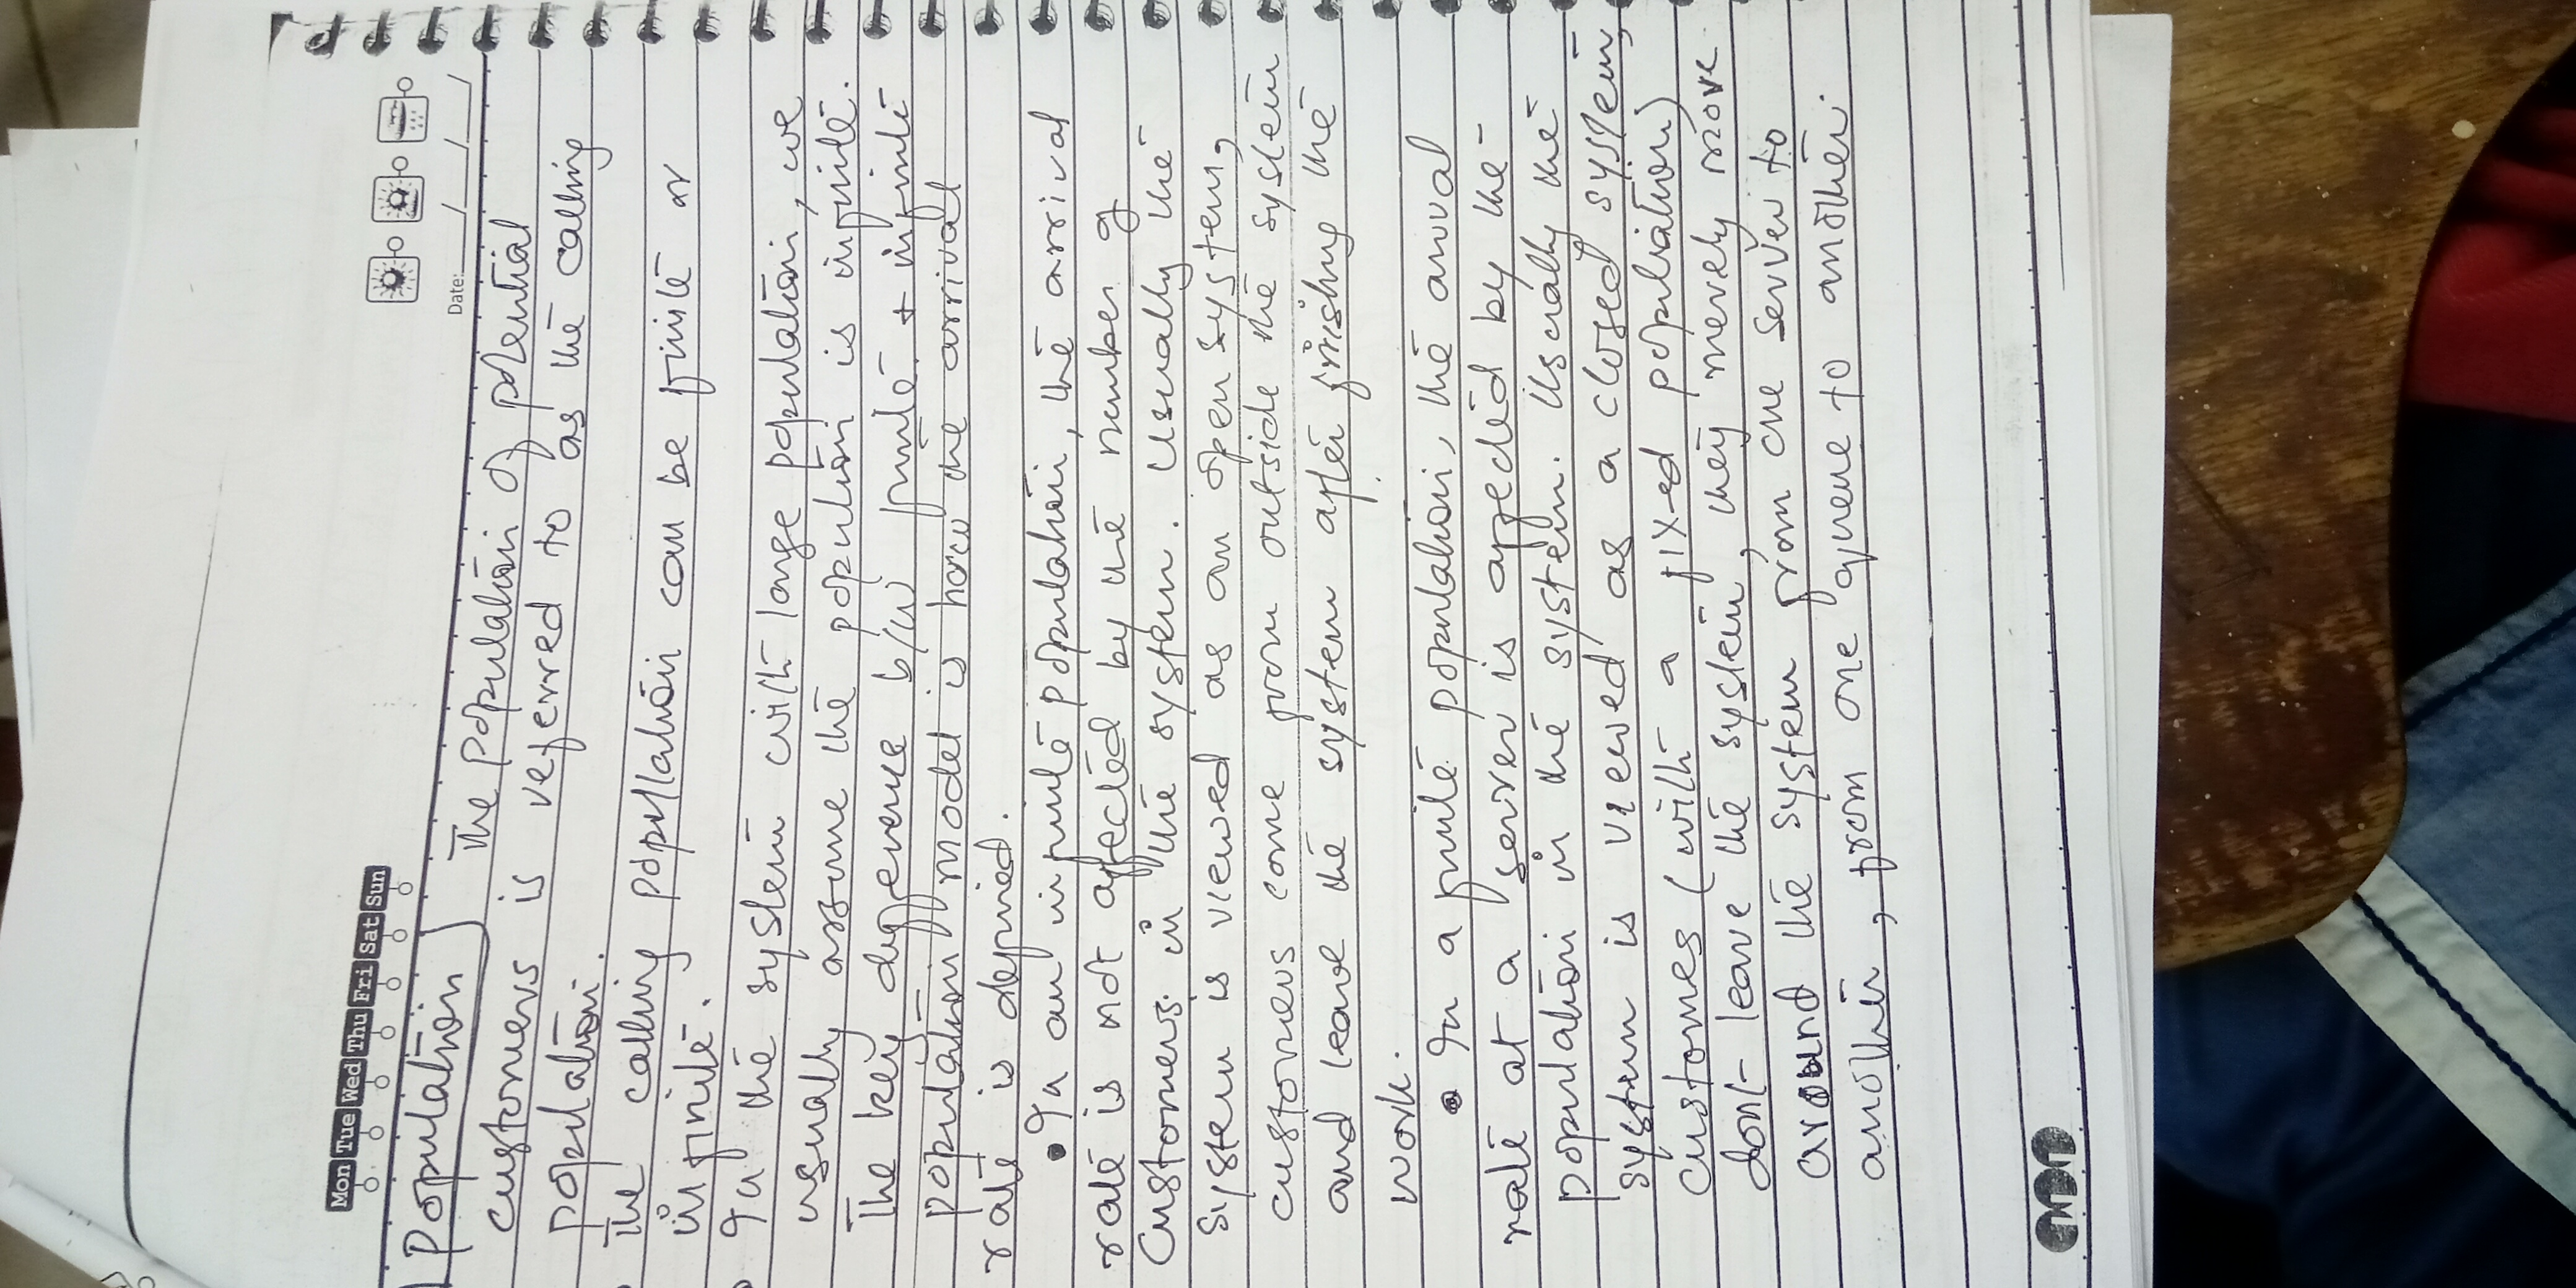 Mon Tue Wed Thu Fri Sat Sun
Date:
Population) The population of potential
customers is referred to as the calling
population.
The calling population can be finite or
infinite.
In the system with large population, we
usually assume the population is infinite.
The key difference b/w finite + infinite
population model is how the arrival
rate is defined.
• In an infinite population, the arrival
rate is not affected by the number of
Customers in the system. Usually the
system is viewed as an open system,
customers come from outside the system
and leave the system after finishing the
work.
• In a finite population, the arrival
rate at a server is affected by the
population in the system. Usually the
system is viewed as a closed system,
customes (with a fixed population)
dont leave the system, they merely move
around the system from one server to
another, from one queue to another.